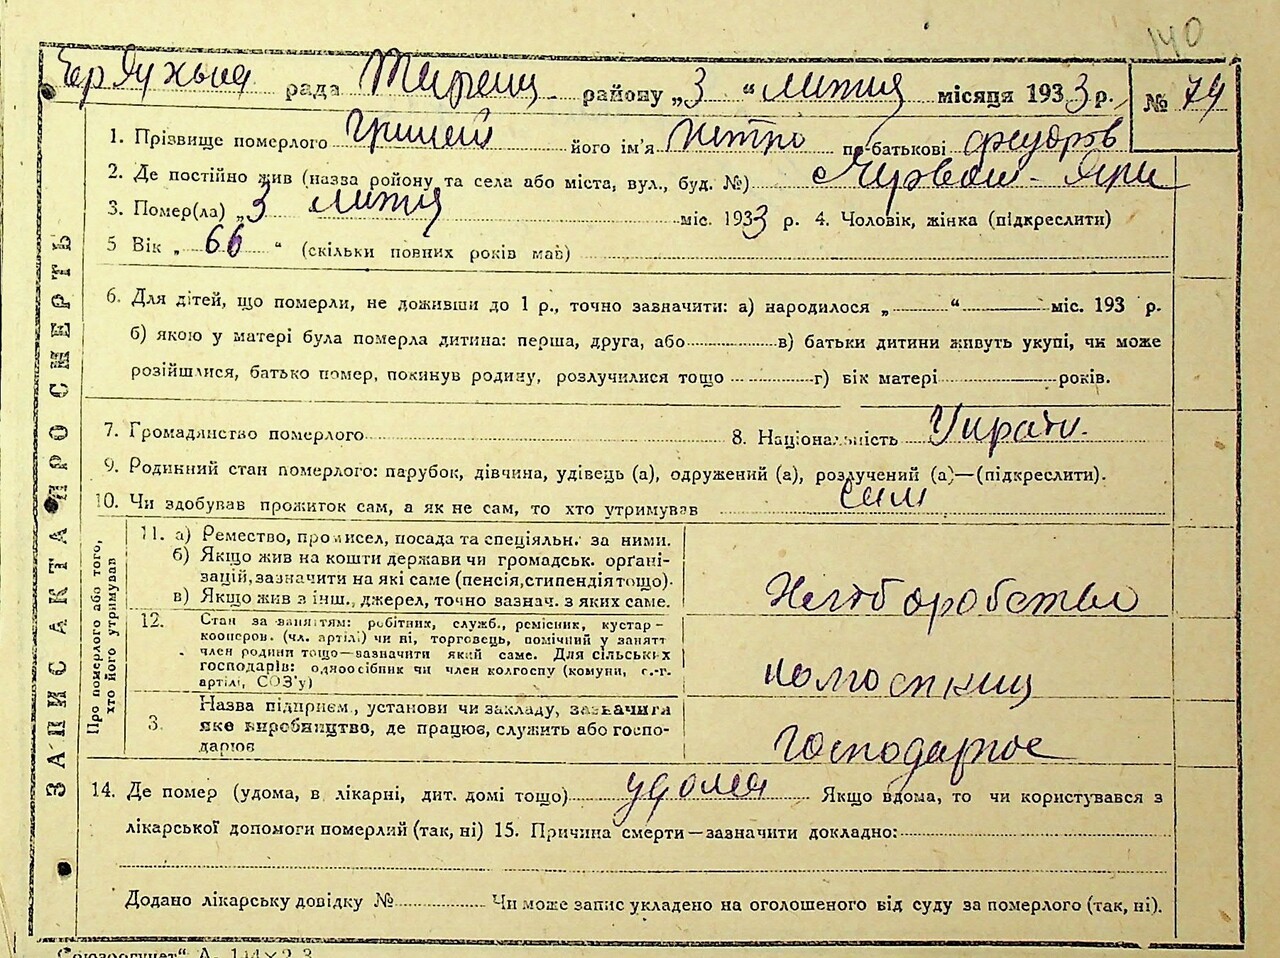 140
рада район у „3 “ лютня місяця 1933 р. № 74
1. Прізвище померлого Грицей його ім'я Петро по-батькові Федоров
2. Де постійно жив (назва ройону та села або міста, вул., буд. №)
3. Помер(ла) „3 лютня міс. 1933 р. 4. Чоловік, жінка (підкреслити)
5 Вік „ 66 “ (скільки повних років мав)
6. Для дітей, що померли, не доживши до 1 р., точно зазначити: а) народилося „ “ міс. 193 р.
б) якою у матері була померла дитина: перша, друга, або в) батьки дитини живуть укупі, чи може
розійшлися, батько помер, покинув родину, розлучилися тощо г) вік матері років.
7. Громадянство померлого 8. Національність Україн.
9. Родинний стан померлого: парубок, дівчина, удівець (а), одружений (а), розлучений (а)—(підкреслити).
10. Чи здобував прожиток сам, а як не сам, то хто утримував сам
ЗАПИС АКТА ПРО СМЕРТЬ
Про померлого або того, хто його утримував
11. а) Ремество, промисел, посада та спеціяльн. за ними.
б) Якщо жив на кошти держави чи громадськ. орґані-
зацій, зазначити на які саме (пенсія, стипендія тощо).
в) Якщо жив з інш., джерел, точно зазнач. з яких саме.
Хліборобство
12. Стан за заняттям: робітник, служб., ремісник, кустар—
кооперов. (чл. артілі) чи ні, торговець, помічний у занятт
член родини тощо—зазначити який саме. Для сільських
господарів: одноосібник чи член колгоспу (комуни, с.-г.
артілі, СОЗ'у)
колгоспник
3. Назва підприєм., установи чи закладу, зазначити
яке виробництво, де працює, служить або госпо-
дарює
господарює
14. Де помер (удома, в лікарні, дит. домі тощо) удома Якщо вдома, то чи користувався з
лікарської допомоги померлий (так, ні) 15. Причина смерти—зазначити докладно:
Додано лікарську довідку № Чи може запис укладено на оголошеного від суду за померлого (так, ні).